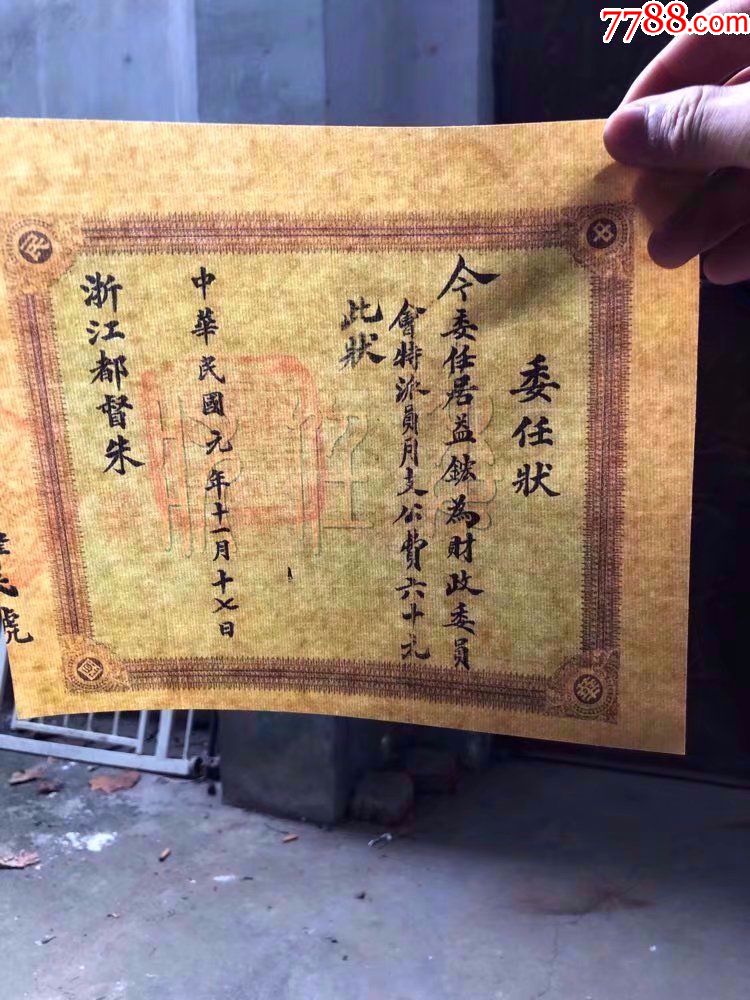 7788.com
委任狀
今委任居益鋐為財政委員
會特派員月支公費六十元
此狀
中華民國元年十一月十七日
浙江都督朱